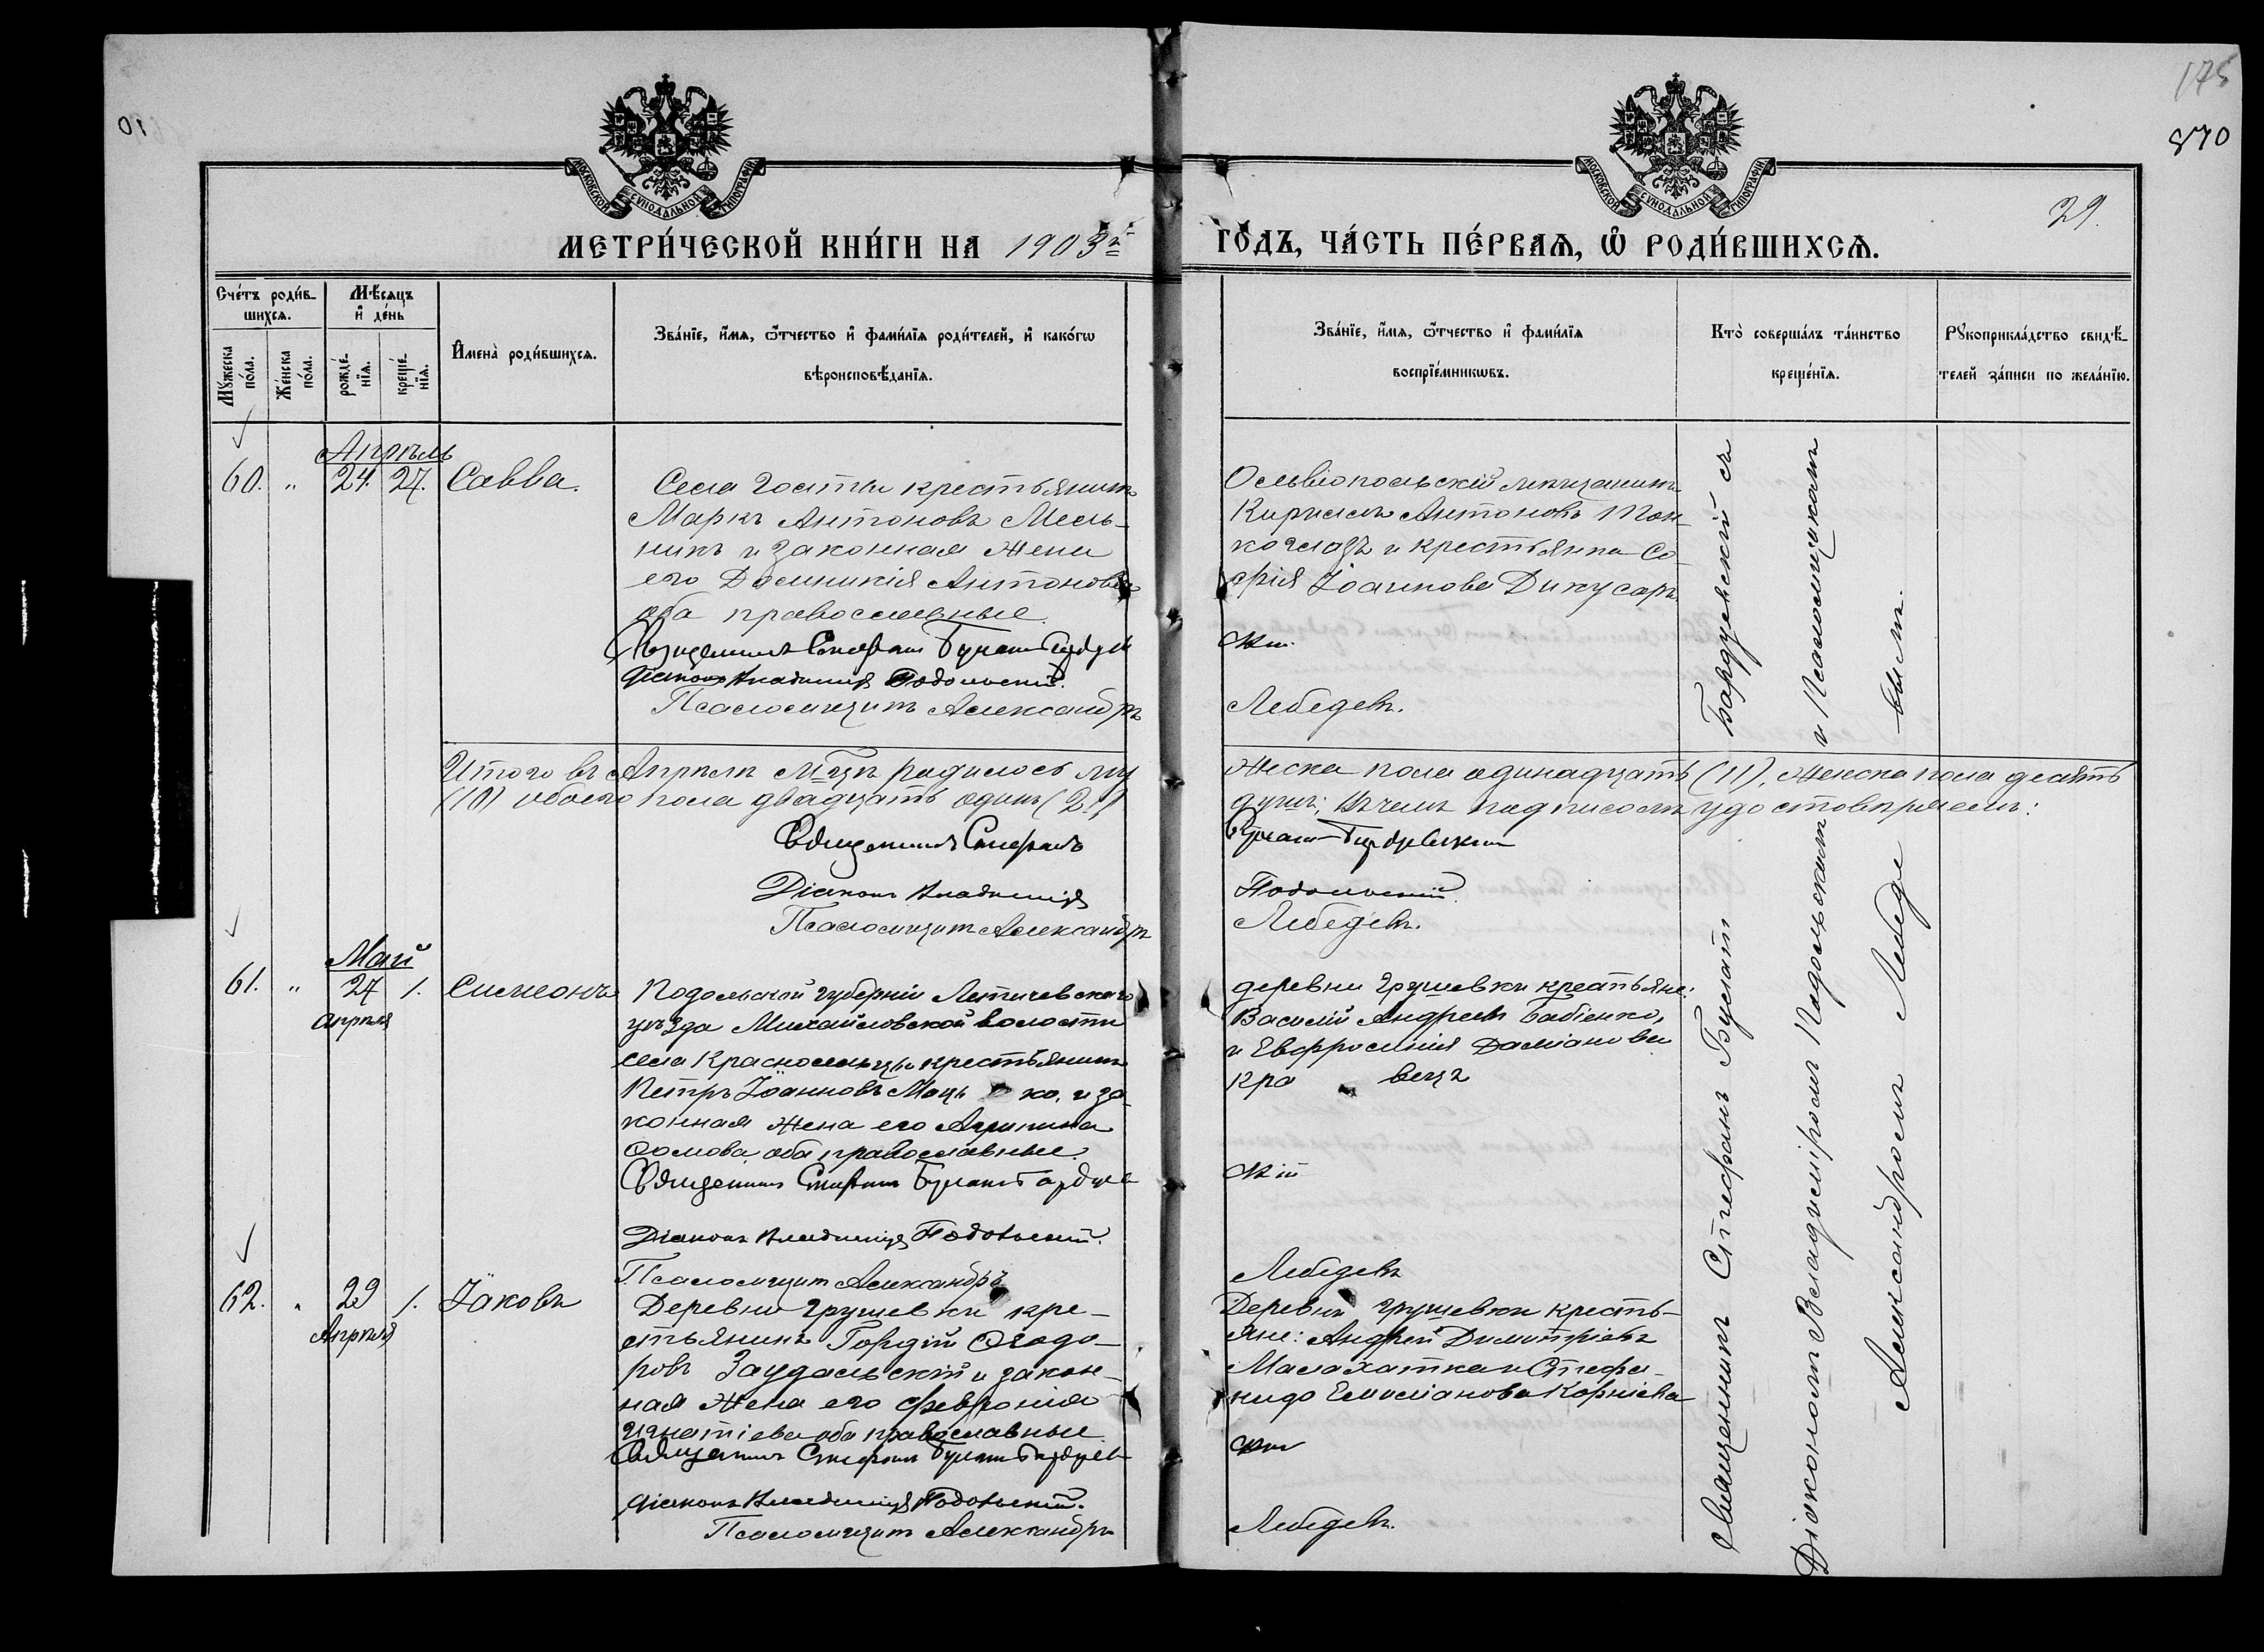 175
870
29.
МОСКОВСКОЙ СѴНОДАЛЬНОЙ ТИПОГРАФІИ
МОСКОВСКОЙ СѴНОДАЛЬНОЙ ТИПОГРАФІИ
МЕТРИ́ЧЕСКОЙ КНИ́ГИ НА 1903 г.
ГО́ДЪ, ЧА́СТЬ ПЕ́РВАѦ, Ѡ҆ РОДИ́ВШИХСѦ.
Сче́тъ роди́в-
шихсѧ.
Мꙋ́жеска по́ла.
Же́нска по́ла.
Мѣ́сѧцъ
и҆ де́нь
рожде́-
нїѧ.
креще́-
нїѧ.
И҆мена̀ роди́вшихсѧ.
Зва́нїе, и҆́мѧ, ѻ҆́тчество и҆ фами́лїѧ роди́телей, и҆ како́гѡ
вѣроисповѣ́данїѧ.
Зва́нїе, и҆́мѧ, ѻ҆́тчество и҆ фами́лїѧ
воспрїе́мникѡвъ.
Кто̀ соверша́лъ та́инство
креще́нїѧ.
Рꙋкоприкла́дство свидѣ́-
телей за́писи по жела́нїю.
Апрѣль
60. " 24. 27. Савва.
Села Гостьи крестьянинъ
Маркъ Антоновъ Мель-
никъ и законная жена
его Домникія Антонова
оба православные.
Священникъ Стефанъ Булатъ Бардуев
Діаконъ Владиміръ Подольскій.
Псаломщикъ Александръ
Ольвіопольскій мѣщанинъ
Кириллъ Антоновъ Тон-
коглазъ и крестьянка Со-
фія Іоаннова Дикусаръ.
скій
Лебедевъ.
Итого въ Апрѣлѣ м-цѣ родилось му
жеска пола одинадцать (11), женска пола десять
(10) обоего пола двадцать одинъ (21)
душъ; въ чемъ подписомъ удостовѣряемъ:
Священникъ Стефанъ
Булатъ-Бардуевскій
Діаконъ Владиміръ
Подольскій.
Псаломщикъ Александръ
Лебедевъ.
Май
61. " 27 1. Симеонъ
апрѣля
Подольской губерніи Летичевского
уѣзда Михайловской волости
села Красносельцы крестьянинъ
Петръ Іоанновъ Моць ко, и за-
конная жена его Агрипина
Фомова, оба православные.
Священникъ Стефанъ Булатъ Бардуев
Діаконъ Владиміръ Подольскій.
Псаломщикъ Александръ
деревни Грушевки крестьяне:
Василій Андреевъ Бабіенко,
и Евфросинія Даміанова
Кра вецъ
скій
Лебедевъ
62. " 29 1. Іаковъ
Апрѣля
Деревни Грушевки кре-
стьянинъ Гордій Ѳеодо-
ровъ Заудальскій и закон-
ная жена его Февронія
Игнатіева оба православные.
Священникъ Стефанъ Булатъ Бардуев
Діаконъ Владиміръ Подольскій.
Псаломщикъ Александръ
Деревни Грушевки кресть-
яне: Андрей Димитріевъ
Малахатка и Стефа-
нида Емиліанова Корніева
скій
Лебедевъ.
Священникъ Стефанъ Булатъ Бардуевскій съ
Діакономъ Владиміромъ Подольскимъ и Псаломщикомъ
Александромъ Лебеде вымъ.